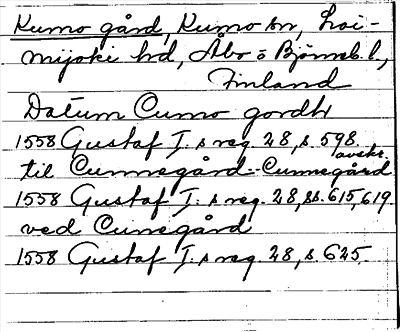 Kumo gård, Kumo sn, Loi-
mijoki hd, Åbo o Björneb. l,
Finland
Datum Cumo gordh
1558 Gustaf I. s reg. 28, s 598.
avskr.
til Cumnegård - Cumnegård
1558 Gustaf I. s reg. 28, ss. 615, 619
ved Cumegård
1558 Gustaf I. s reg. 28, s 625.